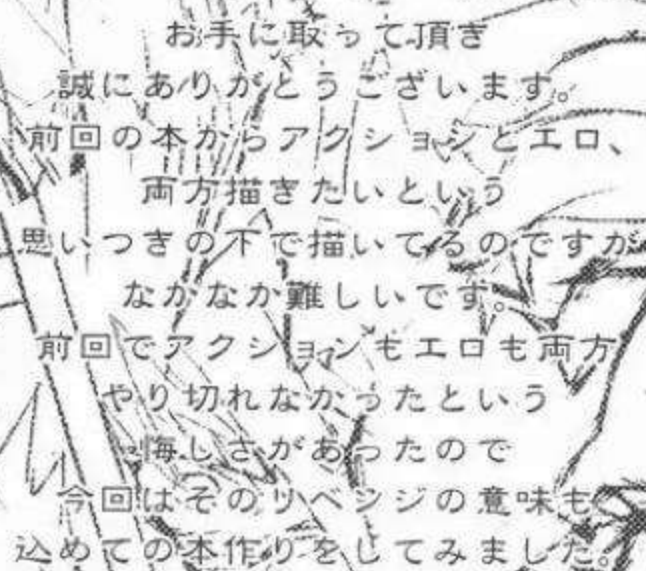 お手に取って頂き
誠にありがとうございます。
前回の本からアクションとエロ、
両方描きたいという
思いつきの下で描いてるのですが
なかなか難しいです。
前回でアクションもエロも両方
やり切れなかったという
悔しさがあったので
今回はそのリベンジの意味も
込めての本作りをしてみました。